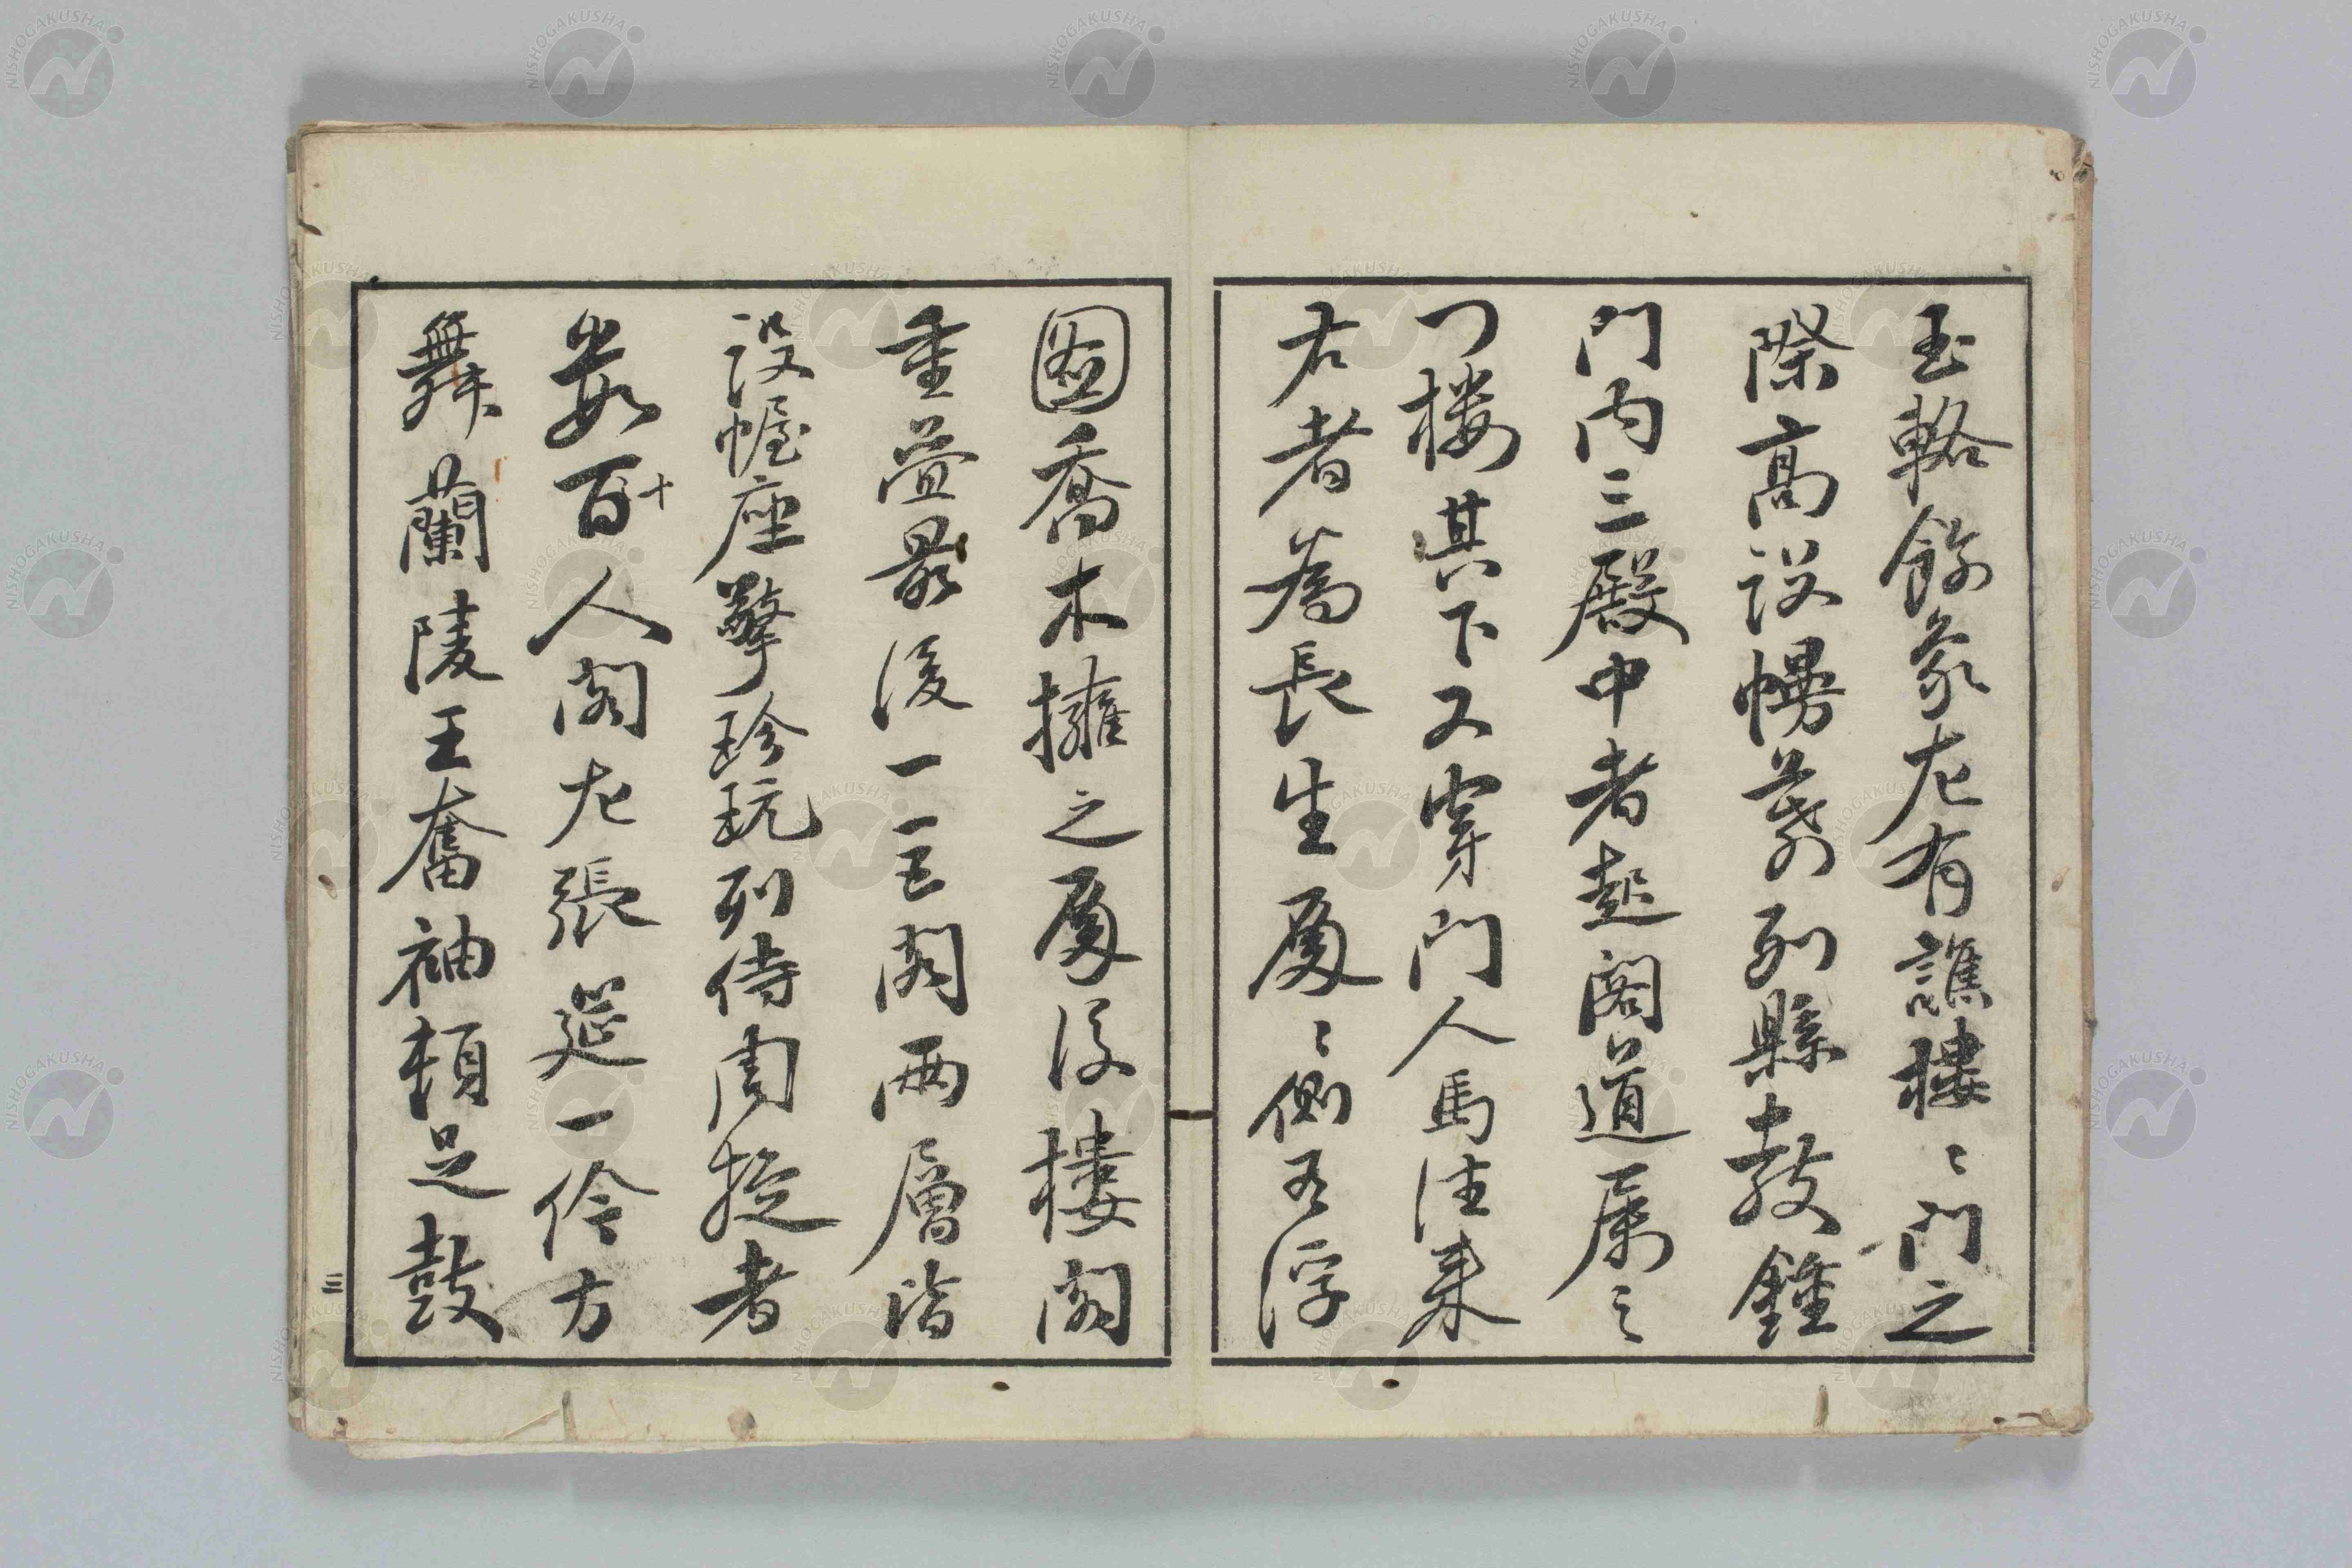 玉輅餙象左有譙樓ミ門之
際高設幔幕列縣鼓鐘
門内三殿中者起閣道属之
门楼其下又穿門人馬往来
右者為長生殿ミ側為浮
圖喬木擁之殿後樓閣
重疊最後一巨閣兩層皆
設幄座擎珍玩列侍周旋者
數百十人閣左張筵一伶方
舞蘭陵王奮袖頓足鼓
三